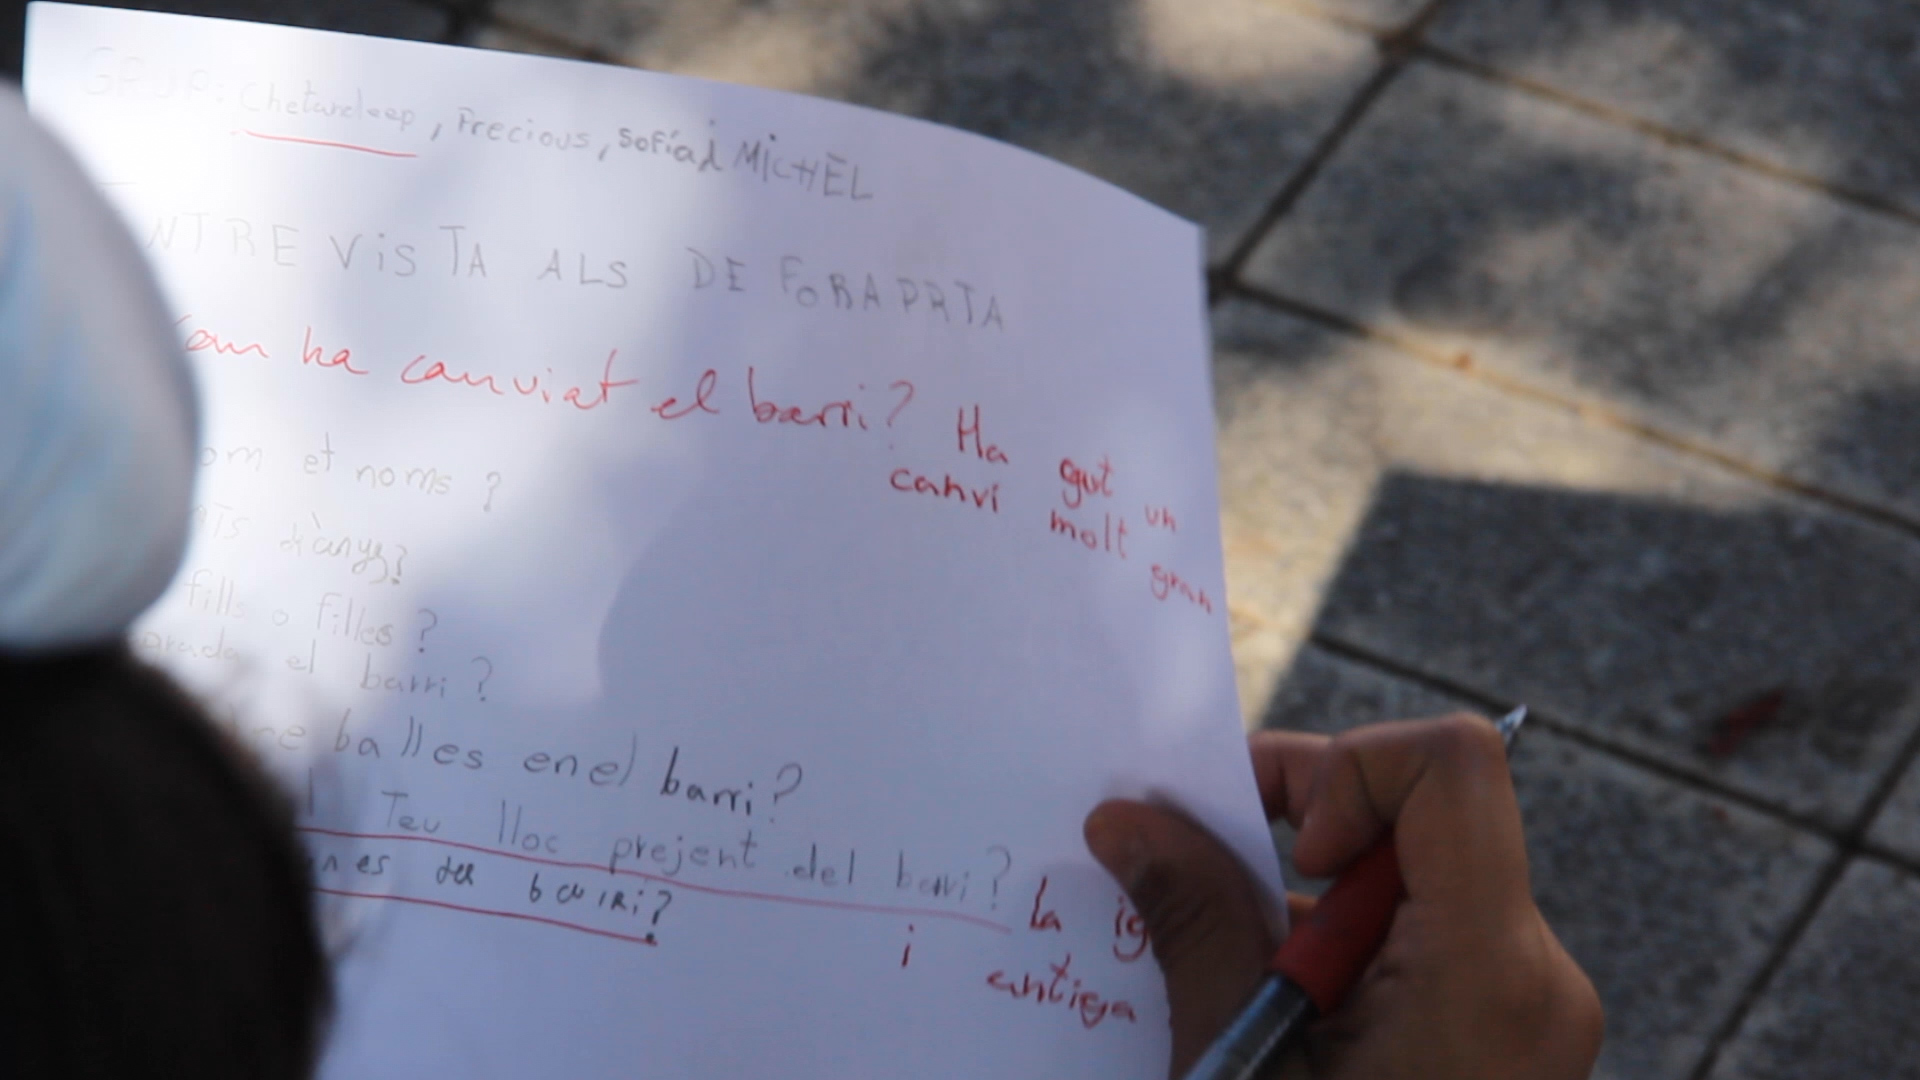 GRUP: Chetandeep, Precious, Sofía i MICHEL
ENTREVISTA ALS DE FORAPRTA
Com ha canviat el barri? Ha gut un
canvi molt gran
om et noms?
ATS d'anys?
fills o filles?
el barri?
balles en el barri?
l Teu lloc prejent del barri? La ig
i antiga
barri?